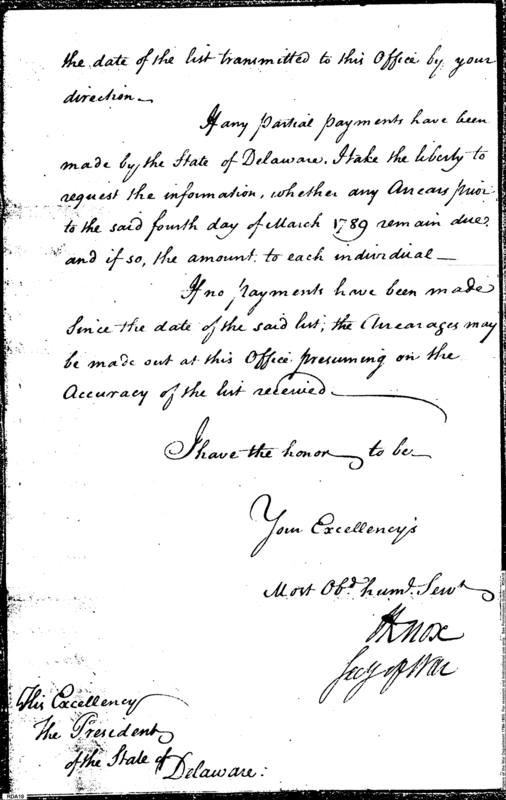 the date of the list transmitted to this Office by your
direction —
If any partial payments have been
made by the State of Delaware. I take the liberty to
request the information, whether any Arears prior
to the said fourth day of March 1789 remain due,
and if so, the amount to each individual —
If no payments have been made
Since the date of the said list; the Arearages may
be made out at this Office presuming on the
Accuracy of the list received —
I have the honor to be
Your Excellency's
Most Obd. humd. Servt
HKnox
Secy of War
His Excellency
The President
of the State of
Delaware:
RDA18